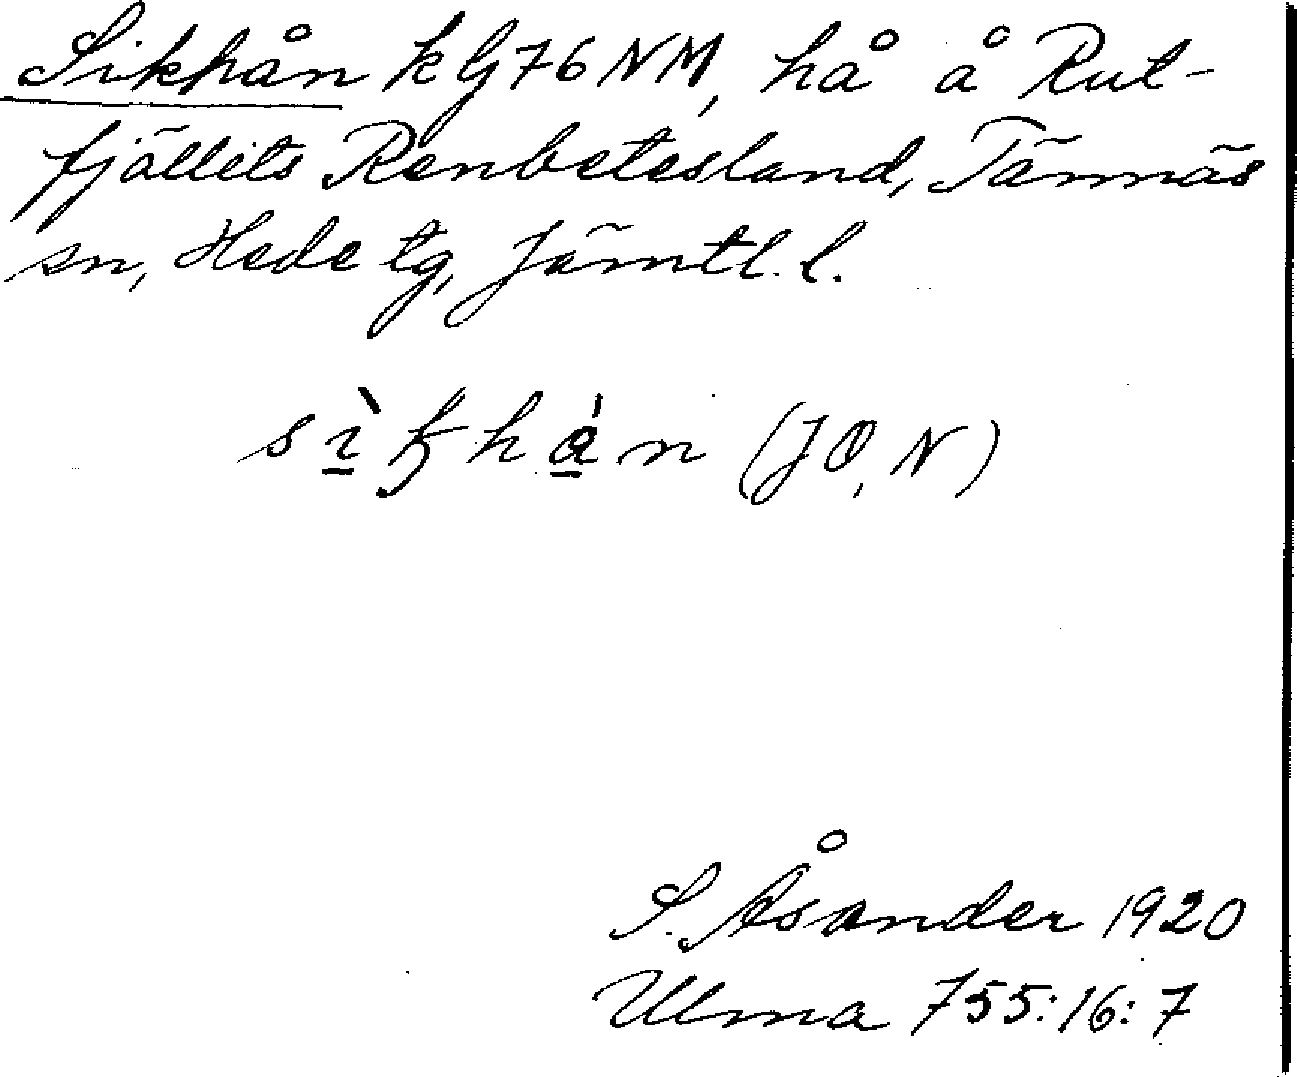 Sikhån k G 76 NM, hå å Rut-
fjällets Renbetesland, Tännäs
sn, Hede tg, Jämtl. l.
sìkhån (JO, N)
S. Åsander 1920
Ulma 755:16:7